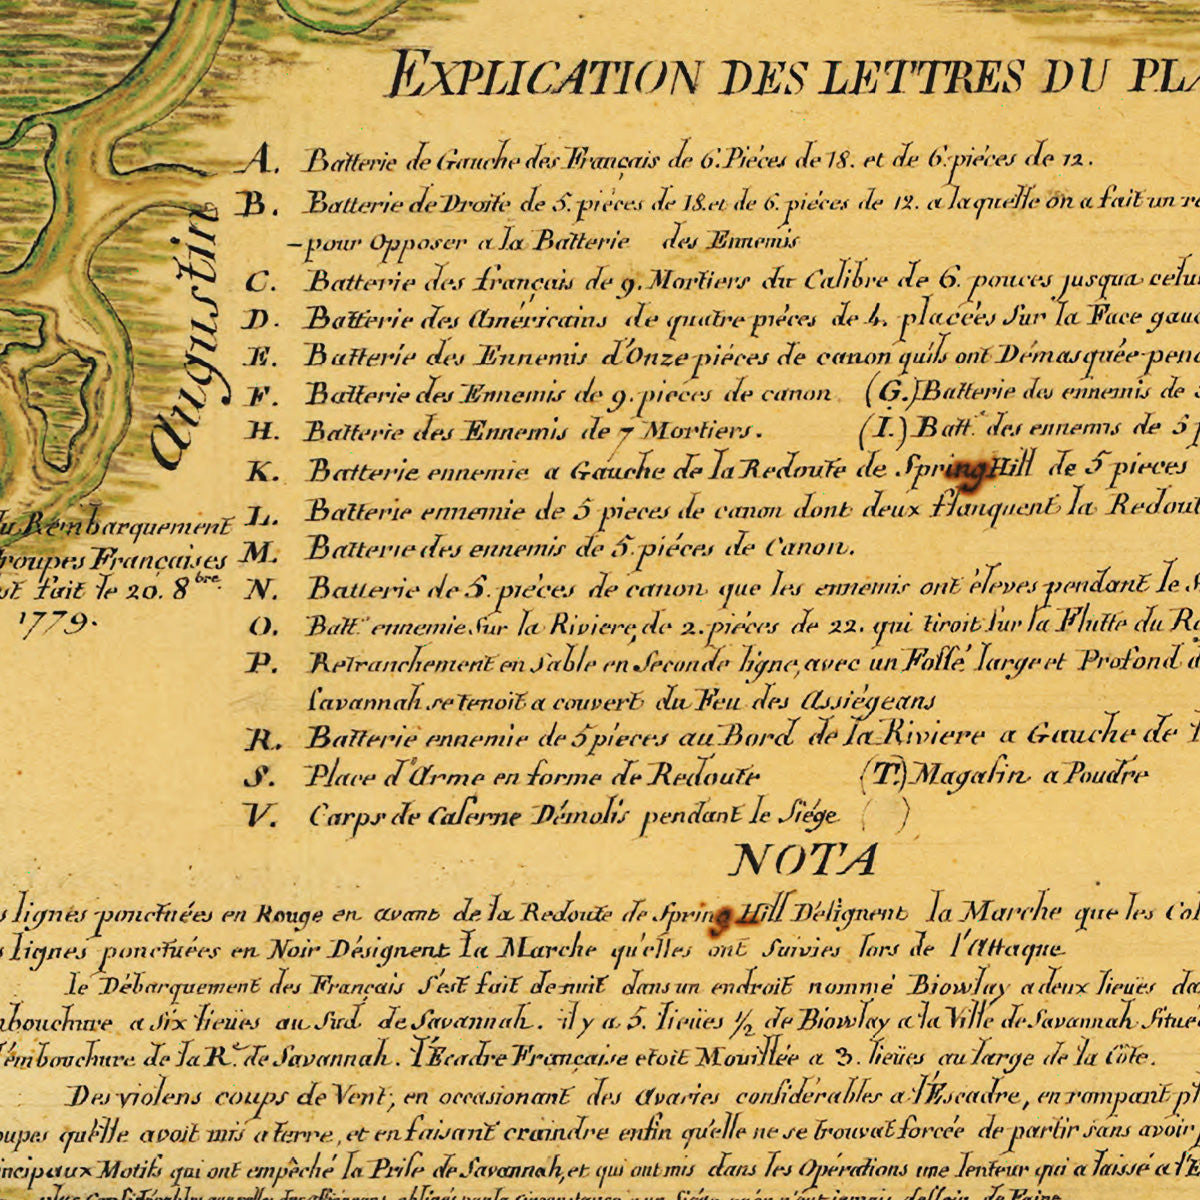 EXPLICATION DES LETTRES DU PLA
A. Batterie de Gauche des Français de 6. Piéces de 18. et de 6. piéces de 12.
B. Batterie de Droite de 5. piéces de 18. et de 6. piéces de 12. a laquelle on a fait un re
– pour Opposer a la Batterie des Ennemis
C. Batterie des français de 9. Mortiers du Calibre de 6. pouces jusqua celui
D. Batterie des Américains de quatre piéces de 4. placées Sur la Face gauc
E. Batterie des Ennemis d'Onze piéces de canon qu'ils ont Démasquée pend
F. Batterie des Ennemis de 9. pieces de canon (G.) Batterie des ennemis de
H. Batterie des Ennemis de 7 Mortiers. (I.) Batt.e des ennemis de 5 p
K. Batterie ennemie a Gauche de la Redoute de Spring Hill de 5 pieces
L. Batterie ennemie de 5 pieces de canon dont deux flanquent la Redout
M. Batterie des ennemis de 5. piéces de Canon.
N. Batterie de 5. piéces de canon que les ennemis ont éleves pendant le S
O. Batt.e ennemie Sur la Riviere, de 2. piéces de 22. qui tiroit Sur la Flutte du Ro
P. Retranchement en Sable en Seconde ligne, avec un Fossé large et Profond d
Savannah se tenoit a couvert du Feu des Assiégeans
R. Batterie ennemie de 5 pieces au Bord de la Riviere a Gauche de
S. Place d'Arme en forme de Redoute (T.) Magasin a Poudre
V. Carps de Caserne Démolis pendant le Siége ( )
Augustin
du Rembarquement
roupes Françaises
st fait le 20. 8bre.
1779.
NOTA
s lignes ponctuées en Rouge en avant de la Redoute de Spring Hill Désignent la Marche que les Col
s lignes ponctuées en Noir Désignent la Marche qu'elles ont Suivies lors de l'Attaque
le Débarquement des Français S'est fait de nuit dans un endroit nommé Biowlay a deux lieües da
nbouchure a six lieües au Sud de Savannah. il y a 5. lieües 1/2 de Biowlay a la Ville de Savannah Situe
l'embouchure de la R.e de Savannah. l'Ecadre Française etoit Mouillée a 3. lieües au large de la Côte.
Des violens coups de Vent, en occasionant des avaries considérables a l'Escadre, en rompant pl
oupes qu'elle avoit mis a terre, et en faisant craindre enfin qu'elle ne se trouvat forcée de partir sans avoir p
incipaux Motifs qui ont empêché la Prise de Savannah, et qui ont mis dans les Opérations une lenteur qui a laissé a l'E